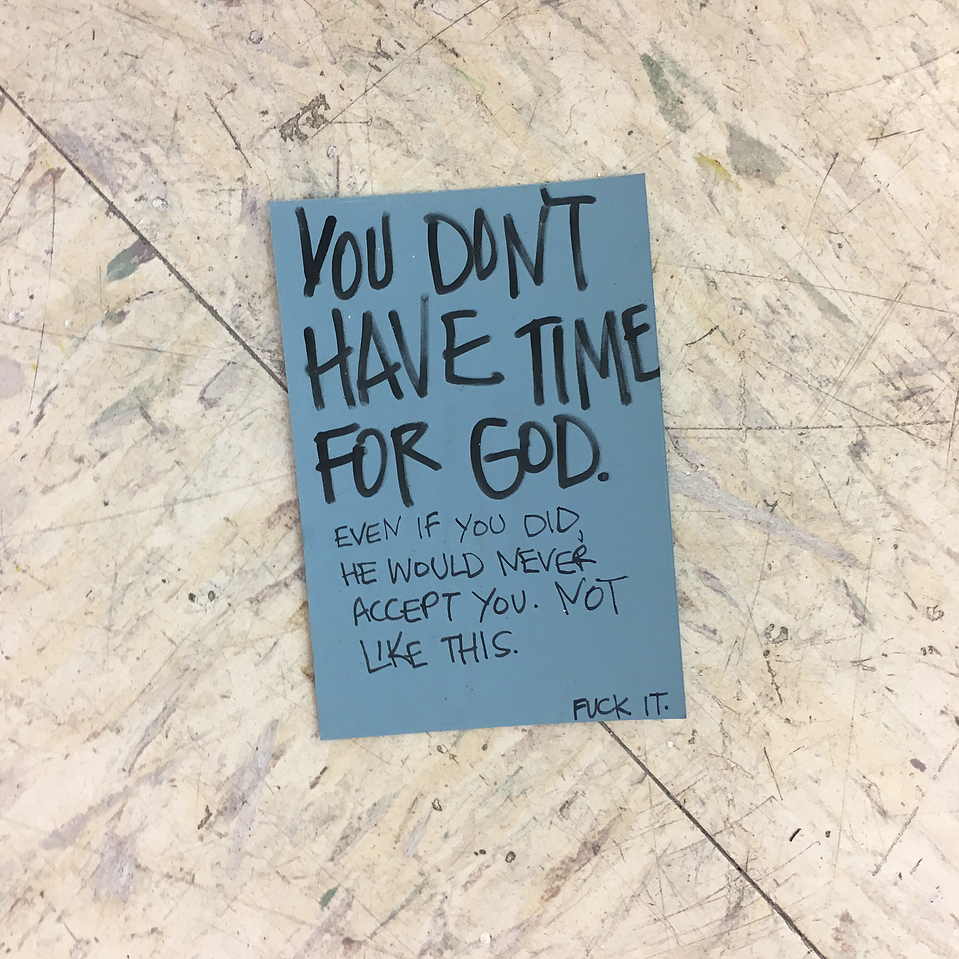 YOU DON'T
HAVE TIME
FOR GOD.
EVEN IF YOU DID,
HE WOULD NEVER
ACCEPT YOU. NOT
LIKE THIS.
FUCK IT.